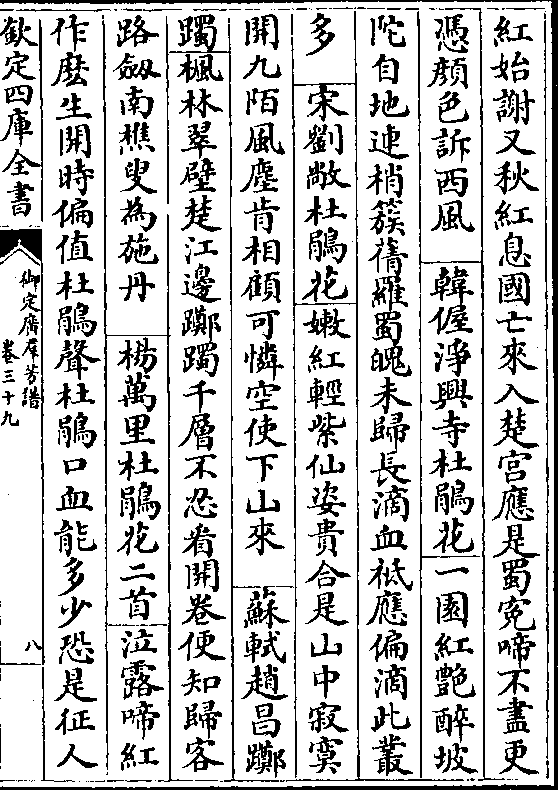 紅始謝又秋紅息國亡來入楚宮應是蜀冤啼不盡更
憑顔色訴西風　韓偓淨興寺杜鵑花　一園紅艷醉坡
陀自地連梢簇蒨羅蜀魄未歸長滴血祗應偏滴此叢
多　宋劉敞杜鵑花　嫩紅輕紫仙姿貴合是山中寂寞
開九陌風塵肯相顧可憐空使下山來　蘇軾趙昌躑
躅　楓林翠壁楚江邊躑躅千層不忍看開卷便知歸客
路劔南樵叟為施丹　楊萬里杜鵑花二首　泣露啼紅
作麽生開時偏值杜鵑聲杜鵑口血能多少恐是征人
欽定四庫全書
御定廣羣芳譜
卷三十九
八